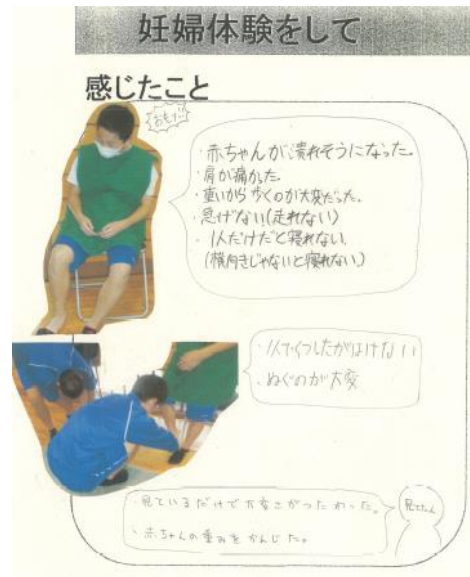 妊婦体験をして
感じたこと
おもた〜
・赤ちゃんが潰れそうになった。
・肩が痛かった。
・重いから歩くのが大変だった。
・急げない(走れない)
・1人だけだと寝れない
(横向きじゃないと寝れない)
・1人でくつしたがはけない
・ぬぐのが大変
・見ているだけで大変さがつたわった。
見てた人
・赤ちゃんの重みをかんじた。